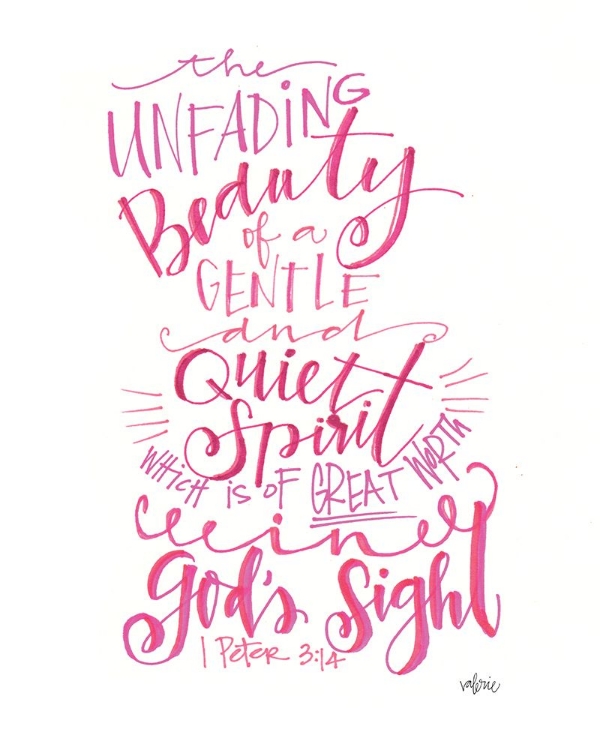 the
UNFADiNG
Beauty
of a
GENTLE
and
Quiet
Spirit
WHicH is oF GREAT WoRTH
in
God's Sight
1 PeTeR 3:14
valerie